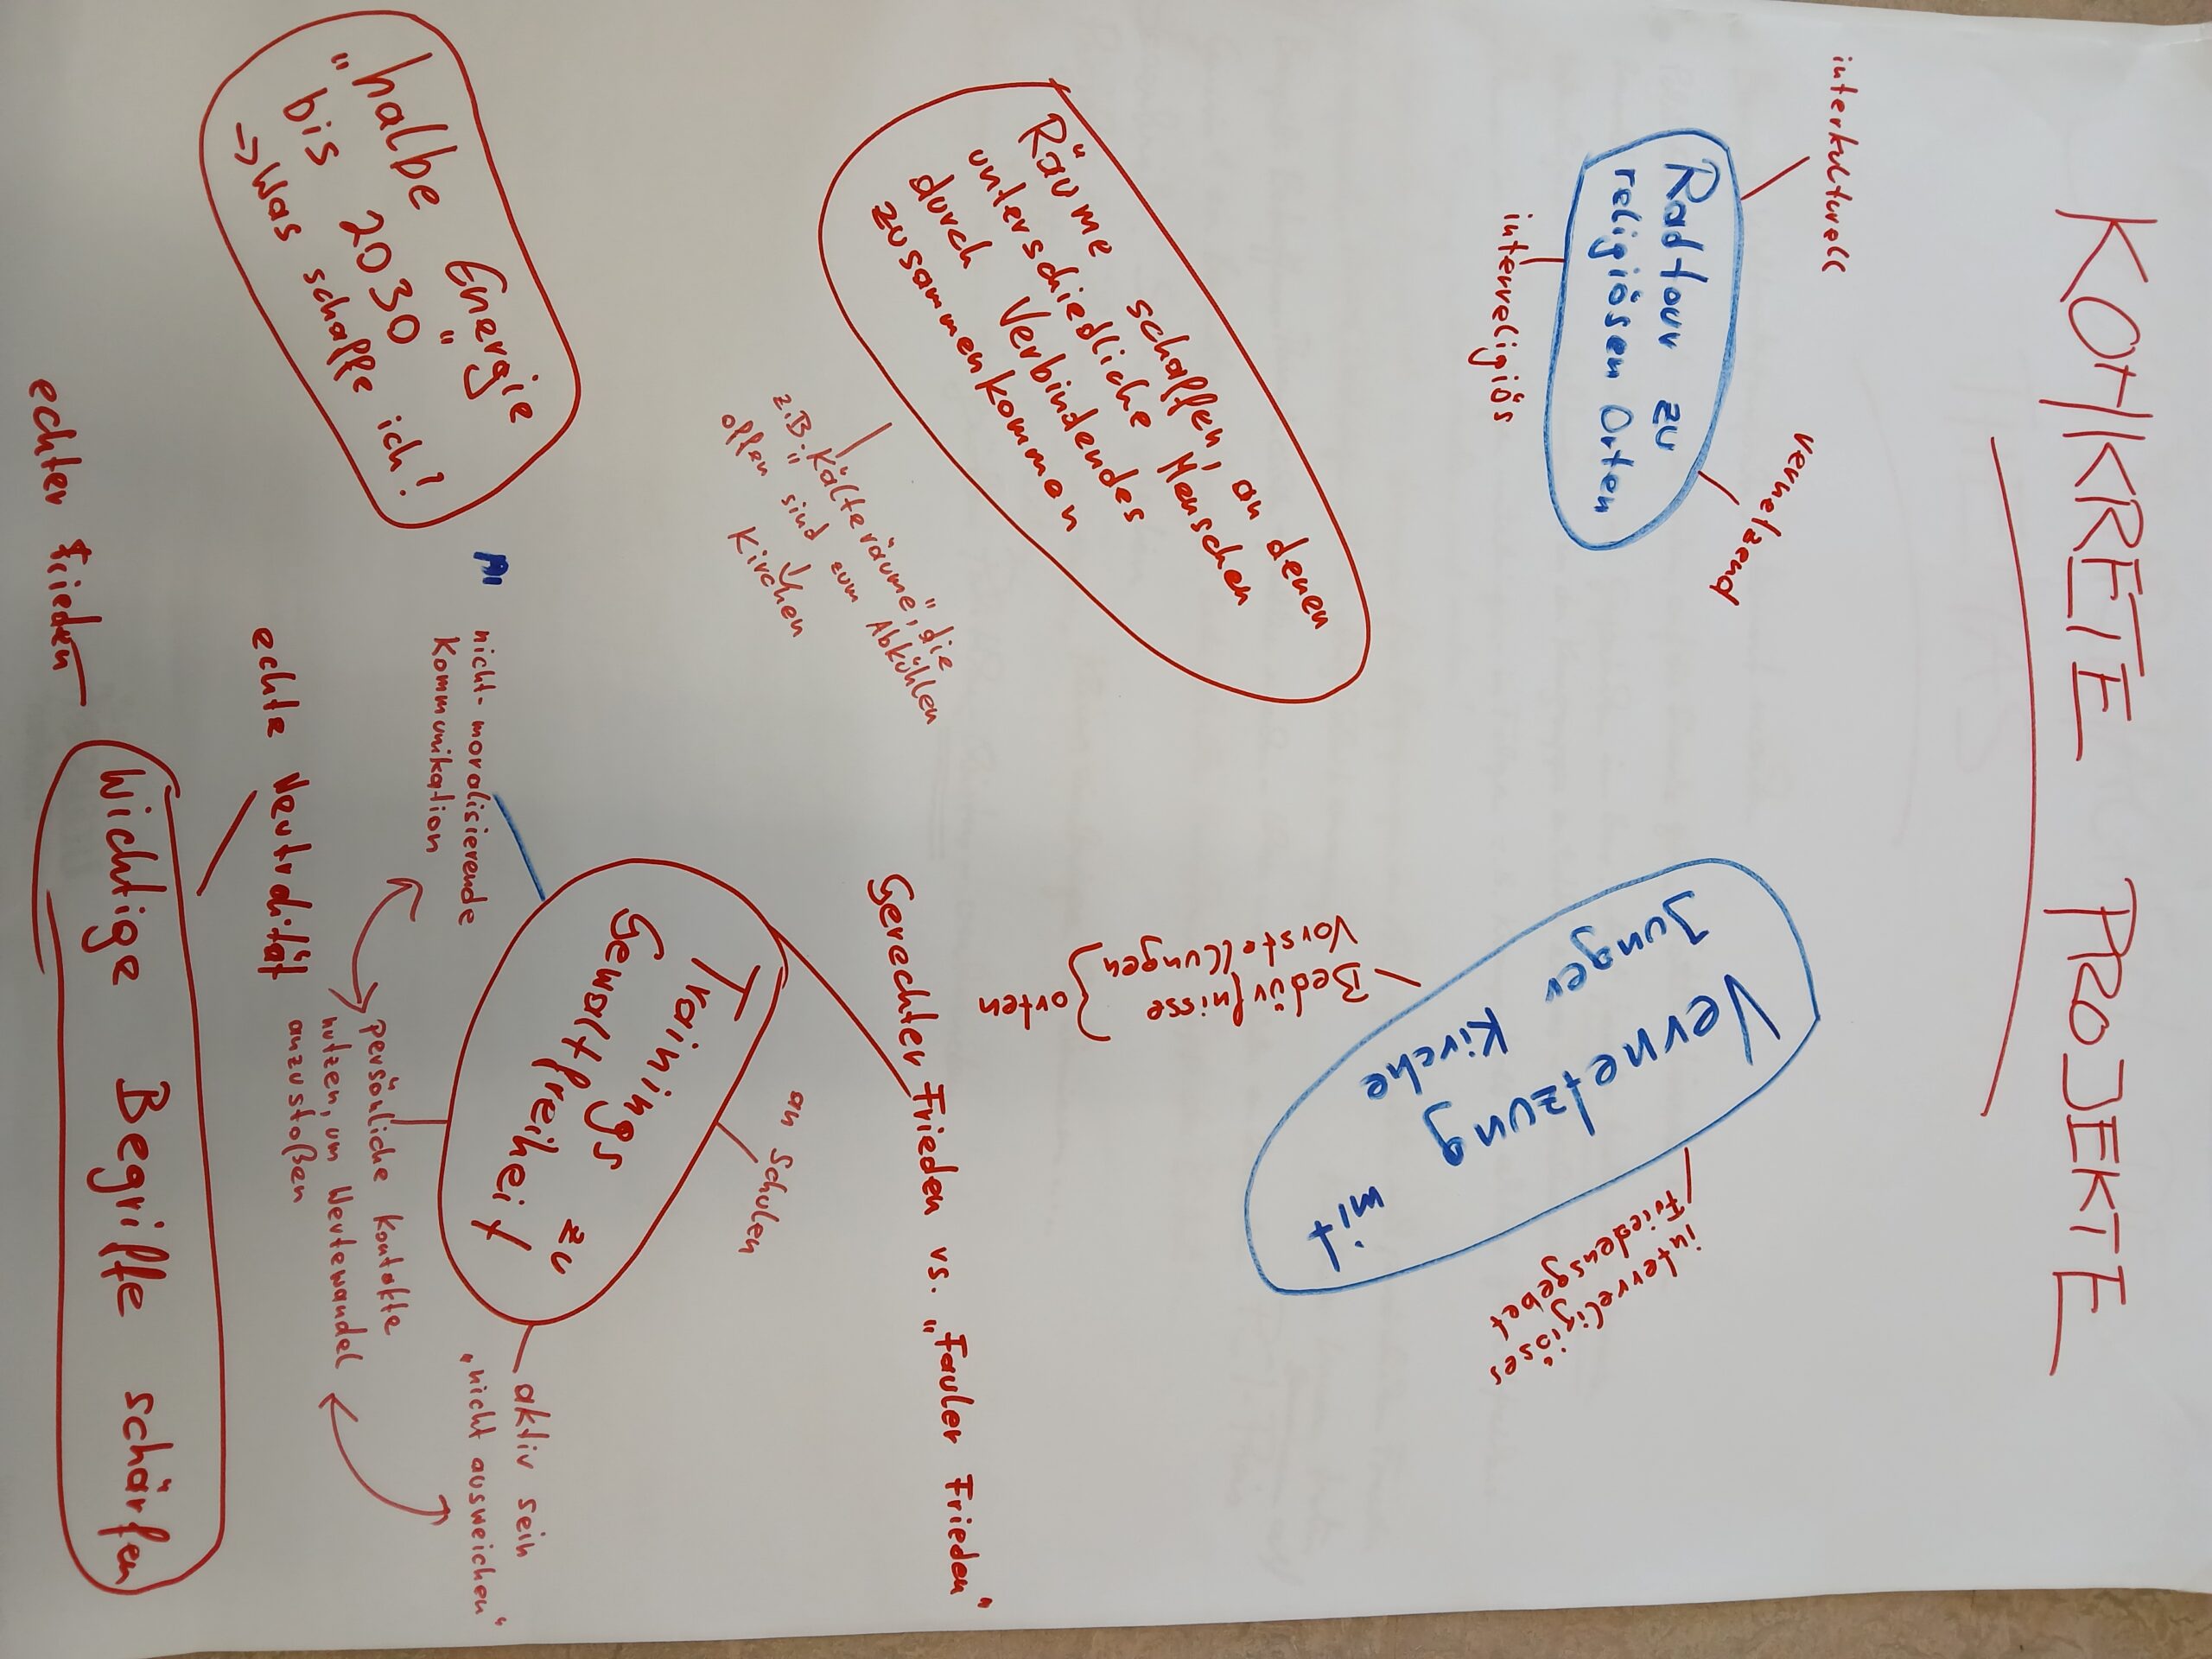 KONKRETE PROJEKTE
interkulturell
Vernetzend
Radtour zu
religiösen Orten
interreligiös
Vernetzung mit
Junger Kirche
interreligiöses
Friedensgebet
Bedürfnisse
Vorstellungen } orten
Räume schaffen, an denen
unterschiedliche Menschen
durch Verbindendes
zusammenkommen
z.B. "Kälteräume", die
offen sind zum Abkühlen
↓
Kirchen
Gerechter Frieden vs. "Fauler Frieden"
an Schulen
Trainings zu
Gewaltfreiheit
nicht-moralisierende
Kommunikation
aktiv sein
"nicht ausweichen"
persönliche Kontakte
nutzen, um Wertewandel
anzustoßen
"halbe Energie
bis 2030"
→ Was schaffe ich?
echte Neutralität
echter Frieden
Wichtige Begriffe schärfen